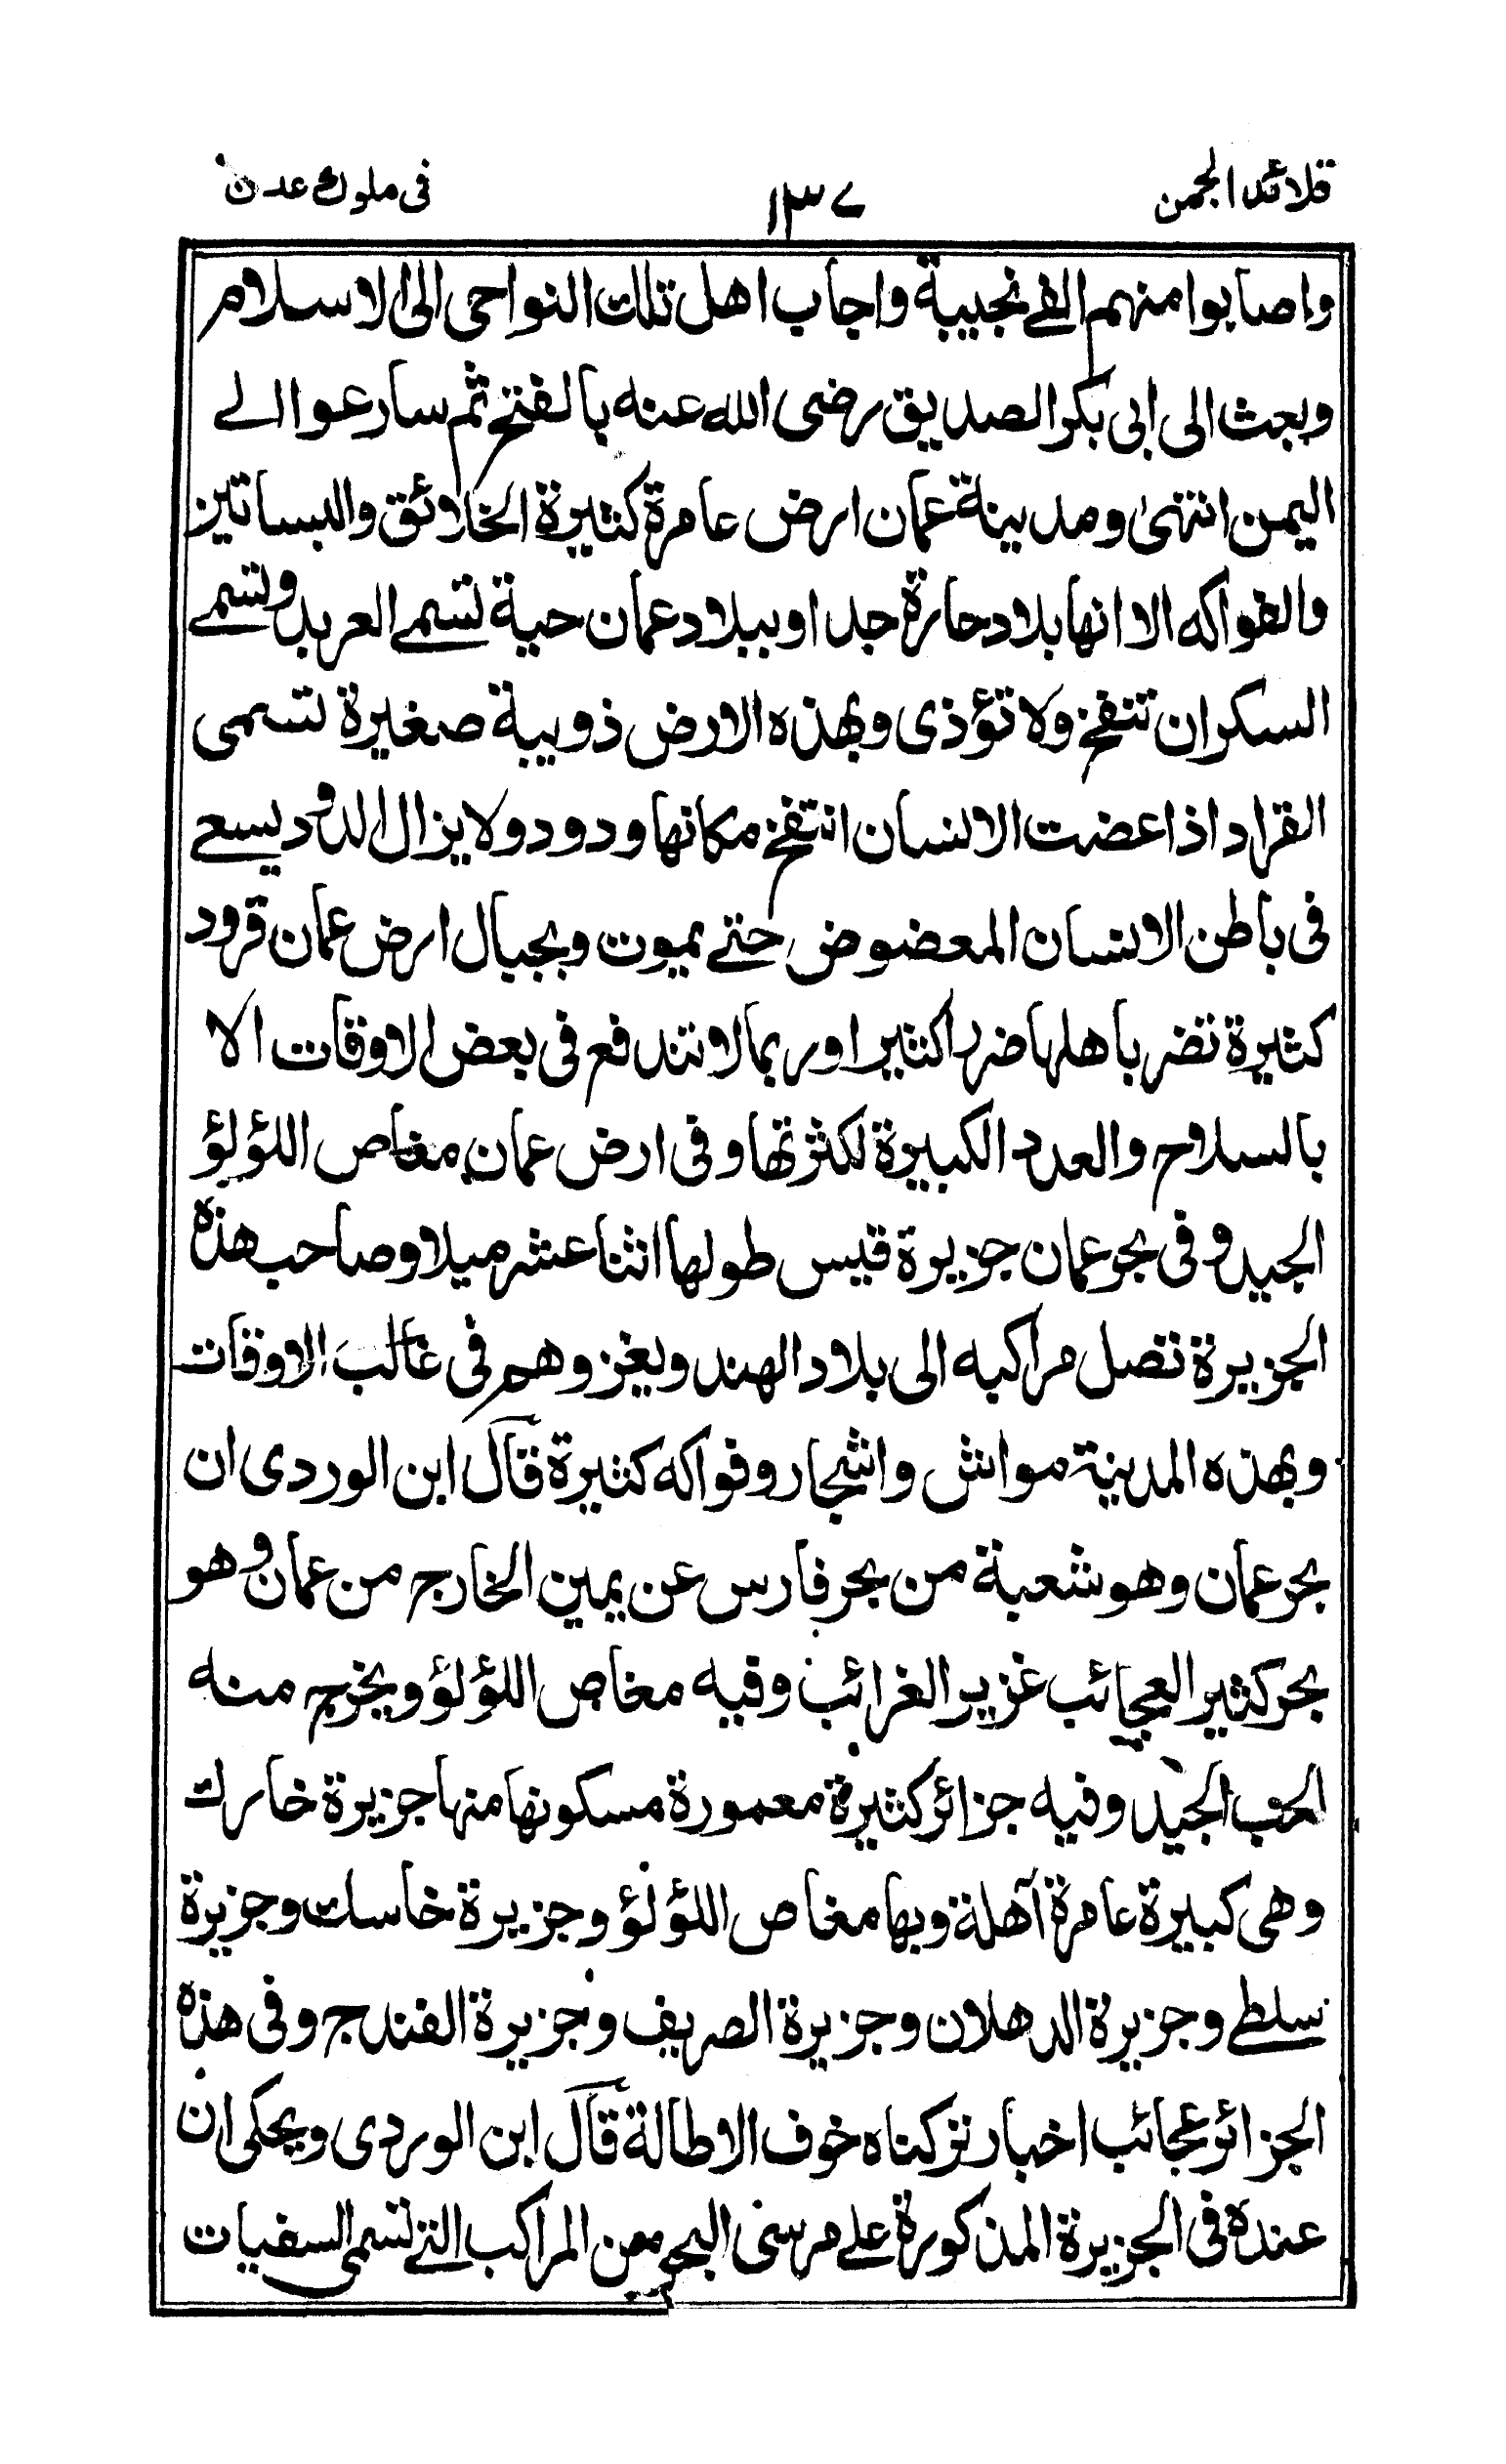 قلائد الجمن ١٣٧ فى ملوك عدن
واصابوا منهم الفے نجيبة واجاب اهل تلك النواحى الى الاسلام
وبعث الى ابى بكر الصديق رضى الله عنه بالفتح ثم سارعوا الے
اليمن انتهىٰ ومدينة عمان ارض عامرة كثيرة الخلائق والبساتين
والفواكه الا انها بلاد حارة جدا وببلاد عمان حية تسمے العربد وتسمے
السكران تنفخ ولا تؤذى وبهذه الارض ذوبية صغيرة تسمى
القراد اذا عضت الانسان انتفخ مكانها ودود ولا يزال الدود يسعے
فى باطن الانسان المعضوض حتے يموت وبجبال ارض عمان قرود
كثيرة تضر باهلها ضررا كثيرا وربما لا تندفع فى بعض الاوقات الا
بالسلاح والعدد الكبيرة لكثرتها وفى ارض عمان مغاص اللؤلؤ
الجيد وفى بحر عمان جزيرة قيس طولها اثنا عشر ميلا وصاحب هذه
الجزيرة تصل مراكبه الى بلاد الهند ويغزوهم فى غالب الاوقات
وبهذه المدينة مواش واشجار وفواكه كثيرة قال ابن الوردى ان
بحر عمان وهو شعبة من بحر فارس عن يمين الخارج من عمان وهو
بحر كثير العجائب غزير الغرائب وفيه مغاص اللؤلؤ ويخرج منه
الحب الجيد وفيه جزائر كثيرة معمورة مسكونها منها جزيرة خارك
وهى كبيرة عامرة آهلة وبها مغاص اللؤلؤ وجزيرة خاسك وجزيرة
سلطے وجزيرة الدهلان وجزيرة الصريف وجزيرة الفندج وفى هذه
الجزائر عجائب اخبار تركناه خوف الاطالة قال ابن الوردى ويحكى ان
عنده فى الجزيرة المذكورة علے مرسى البحر من المراكب التے تسمى السفيات